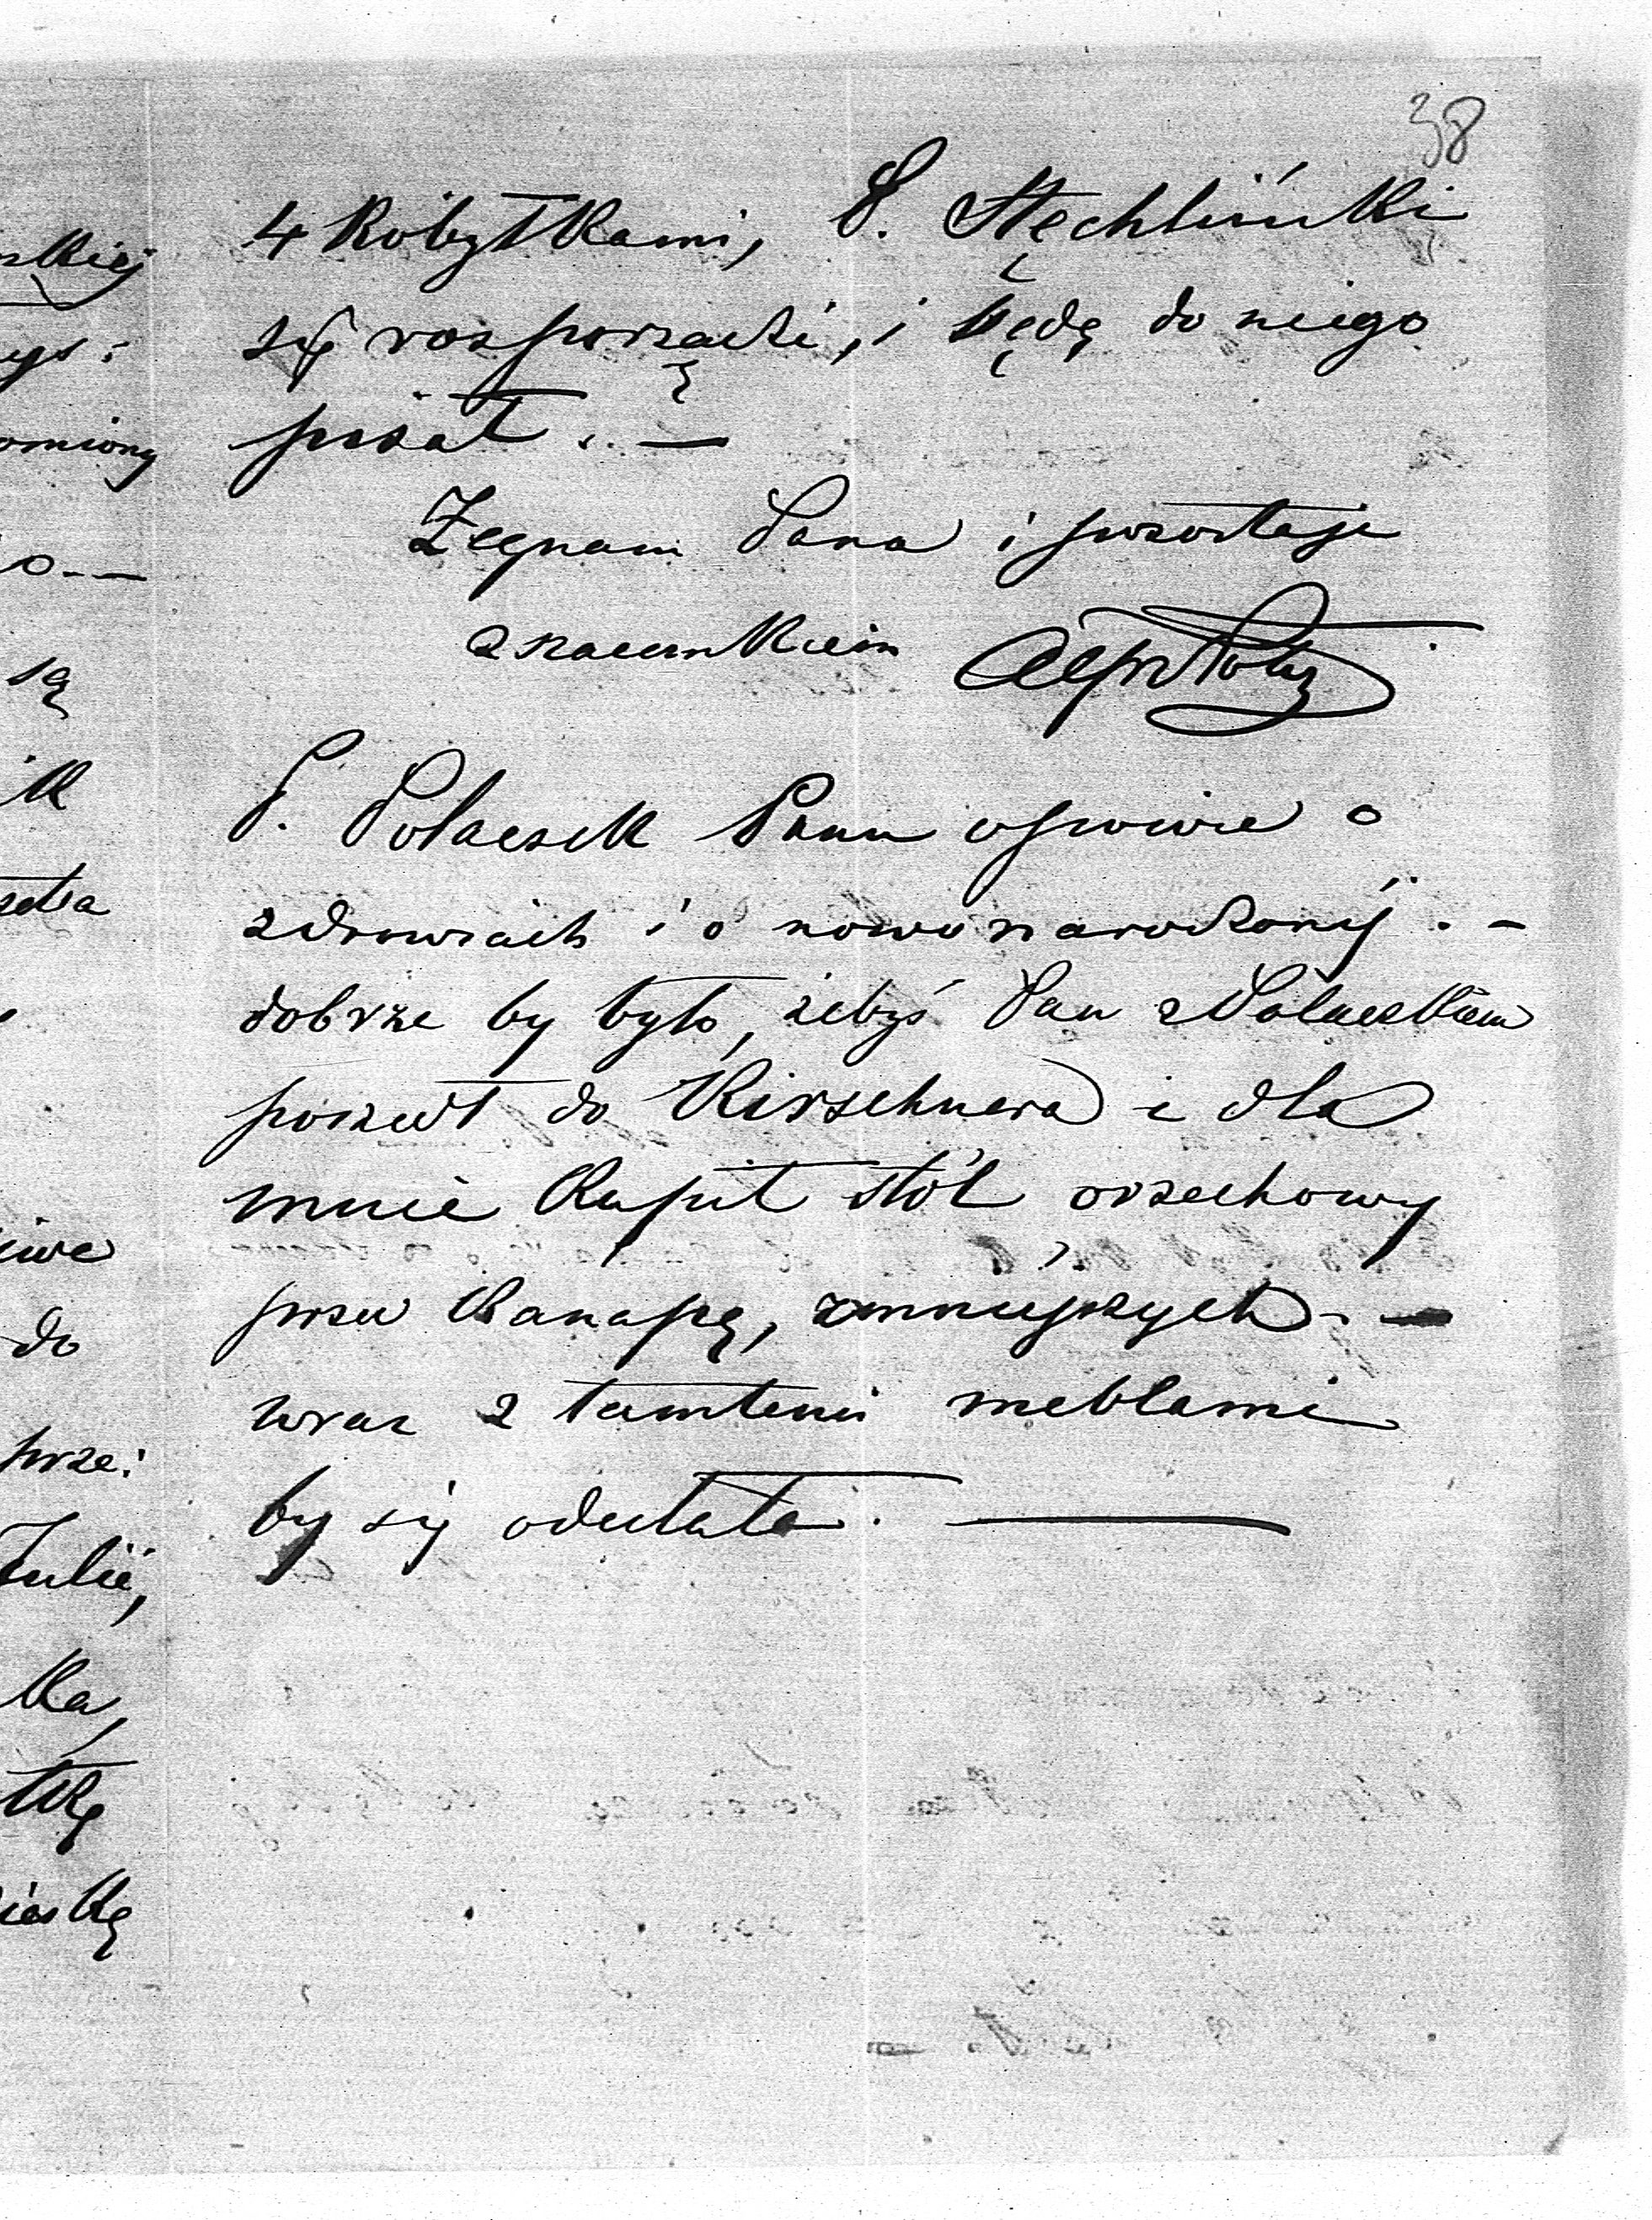 38
4 Kobyłkami, P. Stęchliński
się rozporządzi, i będę do niego
pisał. —
Żegnam Pana i pozostaje
z szacunkiem
P. Polaczek Panu opowie o
zdrowiach i o nowo narodzonej. -
dobrze by było, żebyś Pan z Polaczkiem
poszedł do Kirschnera i dla
mnie kupił stół orzechowy
przed kanapę, z mniejszych - -
wraz z tamtemi meblami
by się odesłało. —
skiej
omiony
o - —
są
ik
do
prze:
Julii,
ka,
tkę